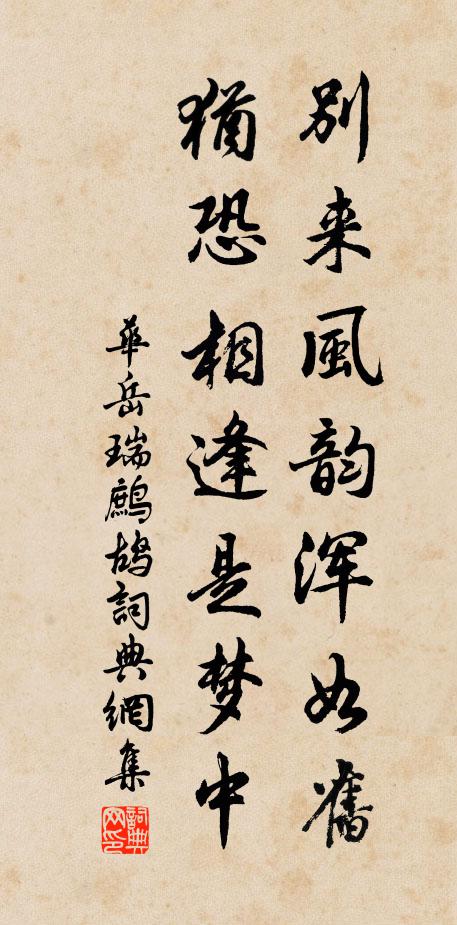 別来風韵浑如舊
猶恐相逢是梦中
華岳瑞鷓鴣詞典網集
詞典网印